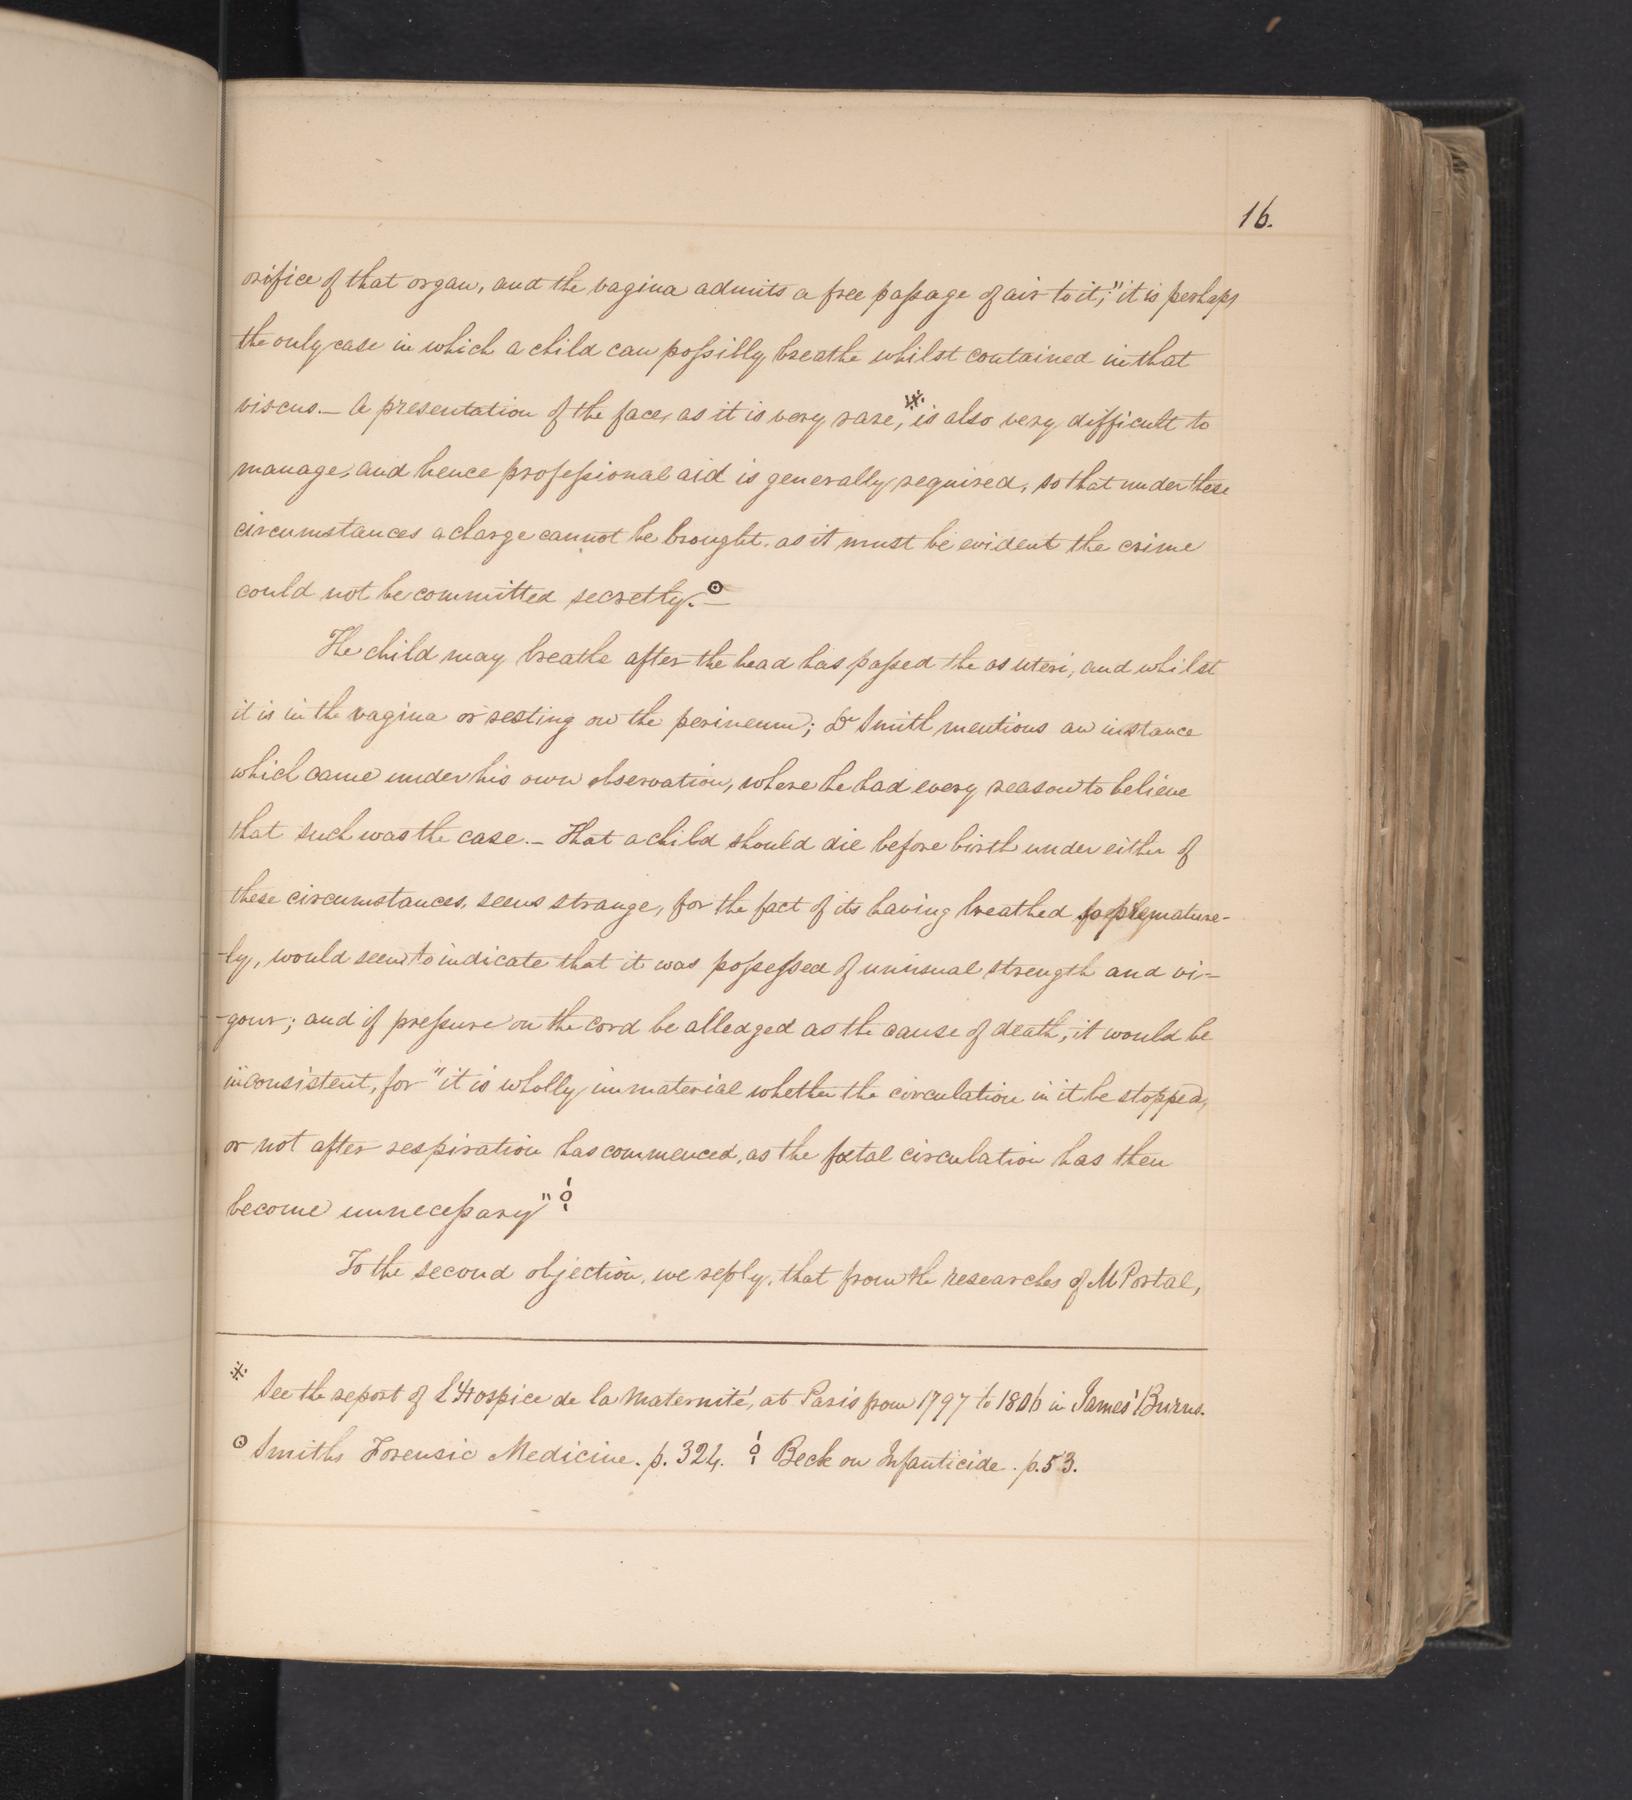 16.
orifice of that organ, and the vagina admits a free passage of air to it;" it is perhaps
the only case in which a child can possibly breathe whilst contained in that
viscus._ A presentation of the face, as it is very rare,※ is also very difficult to
manage, and hence professional aid is generally required, so that under these
circumstances a charge cannot be brought, as it must be evident the crime
could not be committed secretly.⊙_
The child may breathe after the head has passed the os uteri, and whilst
it is in the vagina or resting on the perineum; Dr Smith mentions an instance
which came under his own observation, where he had every reason to believe
that such was the case._ That a child should die before birth under either of
these circumstances, seems strange, for the fact of its having breathed so premature-
-ly, would seem to indicate that it was possessed of unusual strength and vi-
-gour; and if pressure on the cord be alledged as the cause of death, it would be
inconsistent, for "it is wholly immaterial whether the circulation in it be stopped,
or not after respiration has commenced, as the fœtal circulation has then
become unnecessary"
To the second objection, we reply, that from the researches of M Portal,
※ See the report of L'Hospice de la Maternité, at Paris from 1797 to 1806 in James' Burns.
⊙ Smiths Forensic Medicine. p. 324. Beck on Infanticide. p. 53.